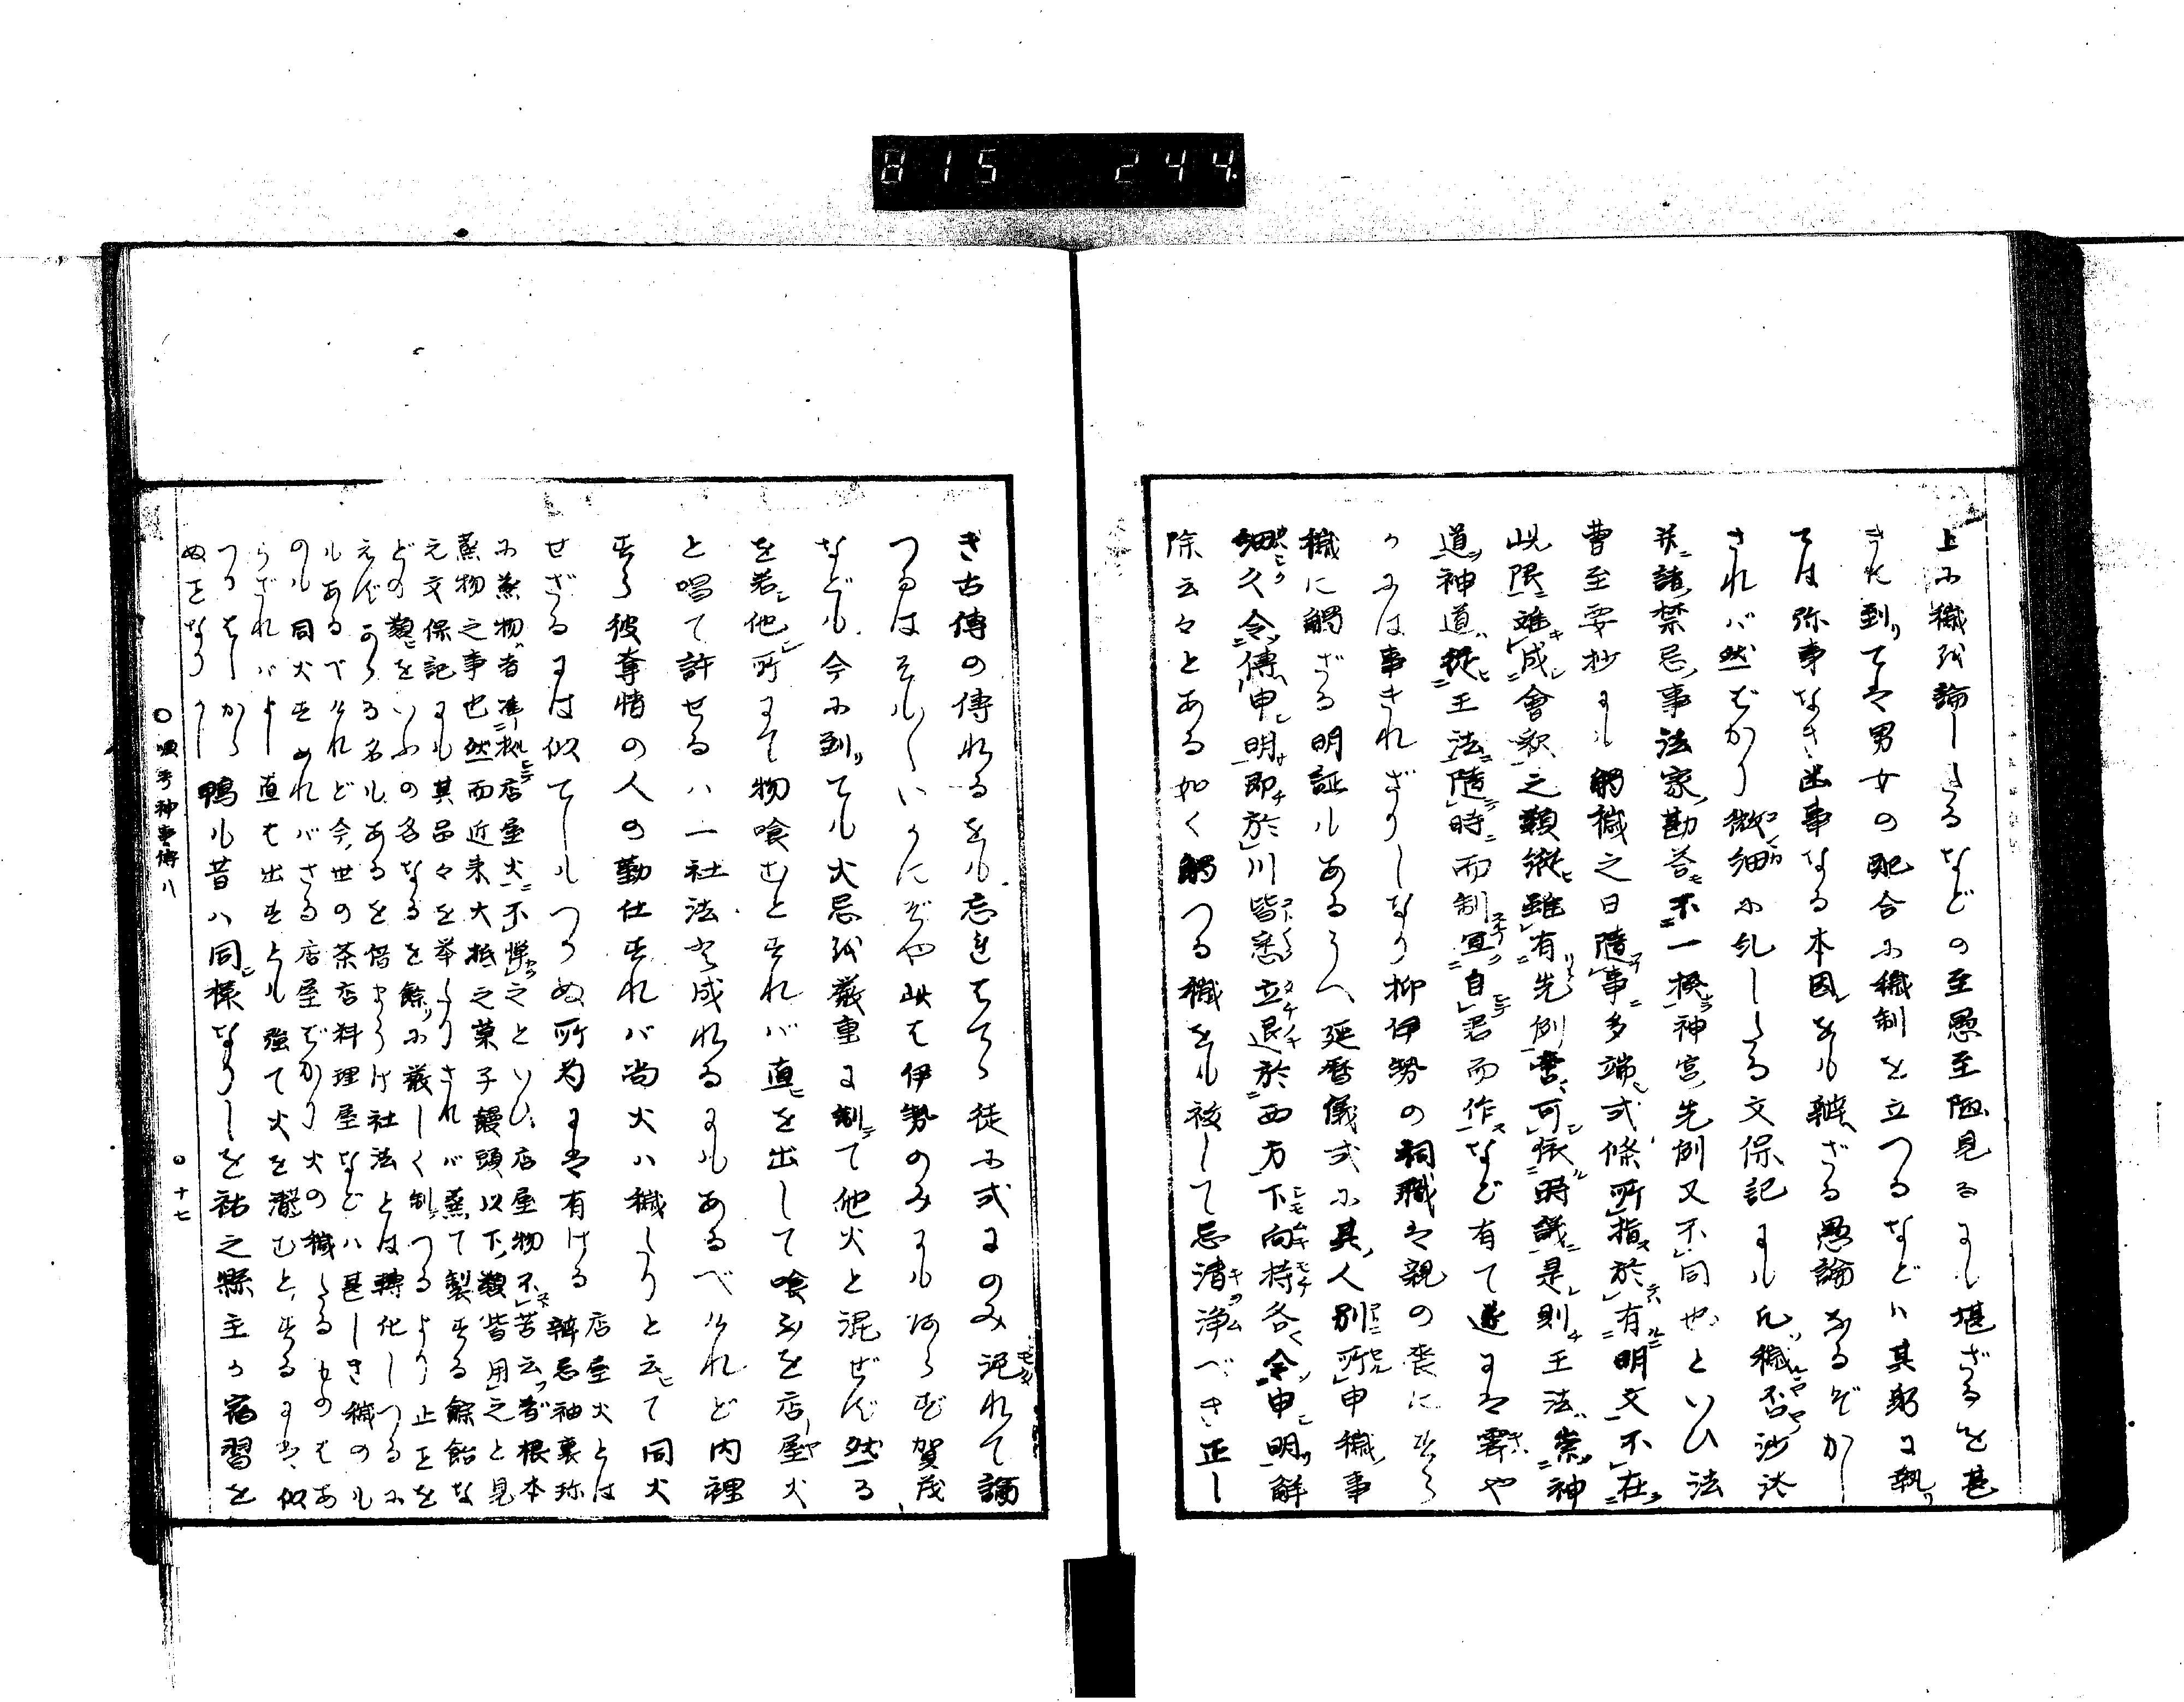 815 244
上に穢を論しゝるなどの至愚至陋見るにも堪ざるを甚
きに到りては男女の配合に穢制を立つるなどハ其躬に執り
ては弥事なき凶事なる本因をも辨ざる愚論なるぞかし
されバ然ばかり微細に乱しゝる文保記にも凡穢否沙汰
并諸禁忌事法家勘答不一揆神宮先例又不同也といひ法
曹至要抄にも觸穢之日隨事多端式條所指於有明文不在
此限難成會釈之類縦雖有先例書可依時議是則王法崇神
道神道従王法隨時而制宜自君而作など有て遂には
うへには事きれざりしなり抑伊勢の祠職は親の喪にすら
穢に觸ざる明証もあるうへ延暦儀式に其人別所申穢事
細久令傳申明即於川皆悉立退於西方下向持各令申明解
除云々とある如く觸つる穢をも祓して忌清浄べき正し
き古傳の傳れるをも忘れはてゝ徒に式にのみ泥れて論
つるはそも〱いかにぞや此は伊勢のみにも何らず賀茂
なども今に到りても火忌を厳重に制て他火と混ぜず然る
を若他所にて物喰むとすれバ直を出して喰ふを店屋火
と唱て許せるハ一社法と成れるにもあるべけれど内裡
すら彼奪情の人の勤仕すれバ尚火ハ穢しりと云て同火
せざるには似てしもつかぬ所為には有ける
店屋火とは辨忌袖裏珍
に蒸物者准拠店屋火不憚之といひ店屋物不苦云者根本
蒸物之事也然而近来大抵之菓子饅頭以下類皆用之と見
元文保記にも其品々を挙しりされバ蒸て製する餘飴な
どの類をいふの名なるを餘に厳しく制つるより止をを
えず有る名もあるを借まうけ社法とは轉化しつるに
もあるべけれど今世の茶店料理屋などハ甚しき穢のも
のも同火すめれバさる店屋ばかり火の穢るものはあ
らざれバよし直を出すとも強て火を濯むとするには似
つるはしからぬをなりかし
鴨も昔ハ同様なりしを祐之縣主の宿習を
○順考神事傳八
○十七